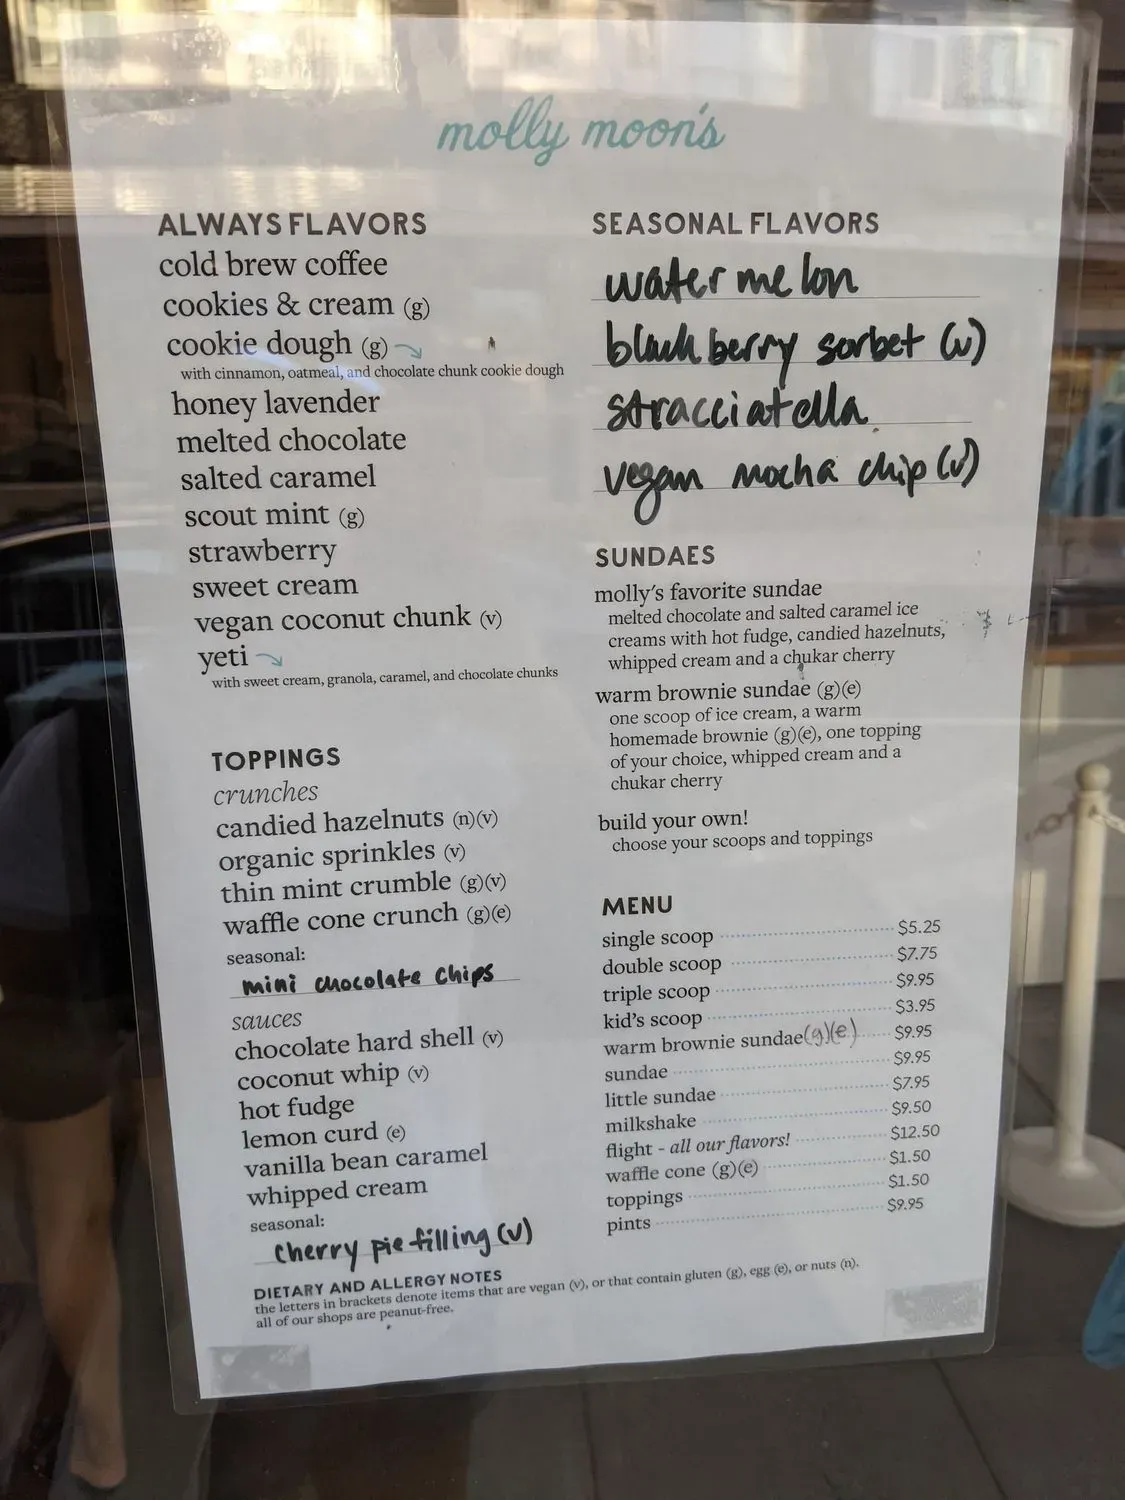 molly moon's
ALWAYS FLAVORS
cold brew coffee
cookies & cream (g)
cookie dough (g)
with cinnamon, oatmeal, and chocolate chunk cookie dough
honey lavender
melted chocolate
salted caramel
scout mint (g)
strawberry
sweet cream
vegan coconut chunk (v)
yeti
with sweet cream, granola, caramel, and chocolate chunks
TOPPINGS
crunches
candied hazelnuts (n)(v)
organic sprinkles (v)
thin mint crumble (g)(v)
waffle cone crunch (g)(e)
seasonal:
mini chocolate chips
sauces
chocolate hard shell (v)
coconut whip (v)
hot fudge
lemon curd (e)
vanilla bean caramel
whipped cream
seasonal:
cherry pie filling (v)
SEASONAL FLAVORS
watermelon
blackberry sorbet (v)
stracciatella
vegan mocha chip (v)
SUNDAES
molly's favorite sundae
melted chocolate and salted caramel ice
creams with hot fudge, candied hazelnuts,
whipped cream and a chukar cherry
warm brownie sundae (g)(e)
one scoop of ice cream, a warm
homemade brownie (g)(e), one topping
of your choice, whipped cream and a
chukar cherry
build your own!
choose your scoops and toppings
MENU
single scoop $5.25
double scoop $7.75
triple scoop $9.95
kid's scoop $3.95
warm brownie sundae (g)(e) $9.95
sundae $9.95
little sundae $7.95
milkshake $9.50
flight - all our flavors! $12.50
waffle cone (g)(e) $1.50
toppings $1.50
pints $9.95
DIETARY AND ALLERGY NOTES
the letters in brackets denote items that are vegan (v), or that contain gluten (g), egg (e), or nuts (n).
all of our shops are peanut-free.